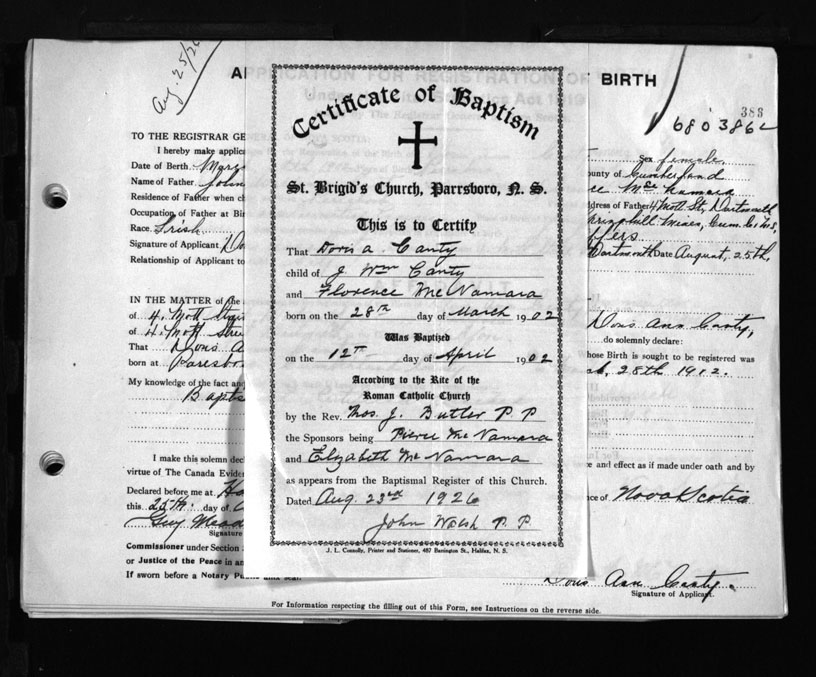 Aug. 25/26
APPLICATION FOR REGISTRATION OF BIRTH
383
680 3862
TO THE REGISTRAR GE
I hereby make applica
Date of Birth
Name of Father John
Residence of Father when ch
Occupation of Father at Bir
Race. Irish
Signature of Applicant
Relationship of Applicant to
IN THE MATTER of the
of 4. Mott Stre
of 4. Mott Stre
That Doris A
born at Parrsbo
My knowledge of the fact and
Baptis
I make this solemn decl
virtue of The Canada Eviden
Declared before me at Ha
this 25th day of
Guy Mead
Signature
Commissioner under Section
or Justice of the Peace in an
If sworn before a Notary Public
Certificate of Baptism
St. Brigid's Church, Parrsboro, N. S.
This is to Certify
That Doris A. Canty
child of J Wm Canty
and Florence McNamara
born on the 28th day of March 1902
Was Baptized
on the 12th day of April 1902
According to the Rite of the
Roman Catholic Church
by the Rev. Thos. J. Butler P P
the Sponsors being Pierce McNamara
and Elizabeth McNamara
as appears from the Baptismal Register of this Church.
Dated Aug. 23rd 1926
John Walsh P. P.
J. L. Connolly, Printer and Stationer, 487 Barrington St., Halifax, N. S.
Sex female
ounty of Cumberland
ce McNamara
ddress of Father 4 Mott St, Dartmouth
pringhill Mines, Cum. Co. N.S,
Dartmouth Date August, 25th,
Doris Ann Canty,
do solemnly declare:
hose Birth is sought to be registered was
28th 1912.
e and effect as if made under oath and by
nce of Nova Scotia
Doris Ann Canty.
Signature of Applicant.
For Information respecting the filling out of this Form, see Instructions on the reverse side.